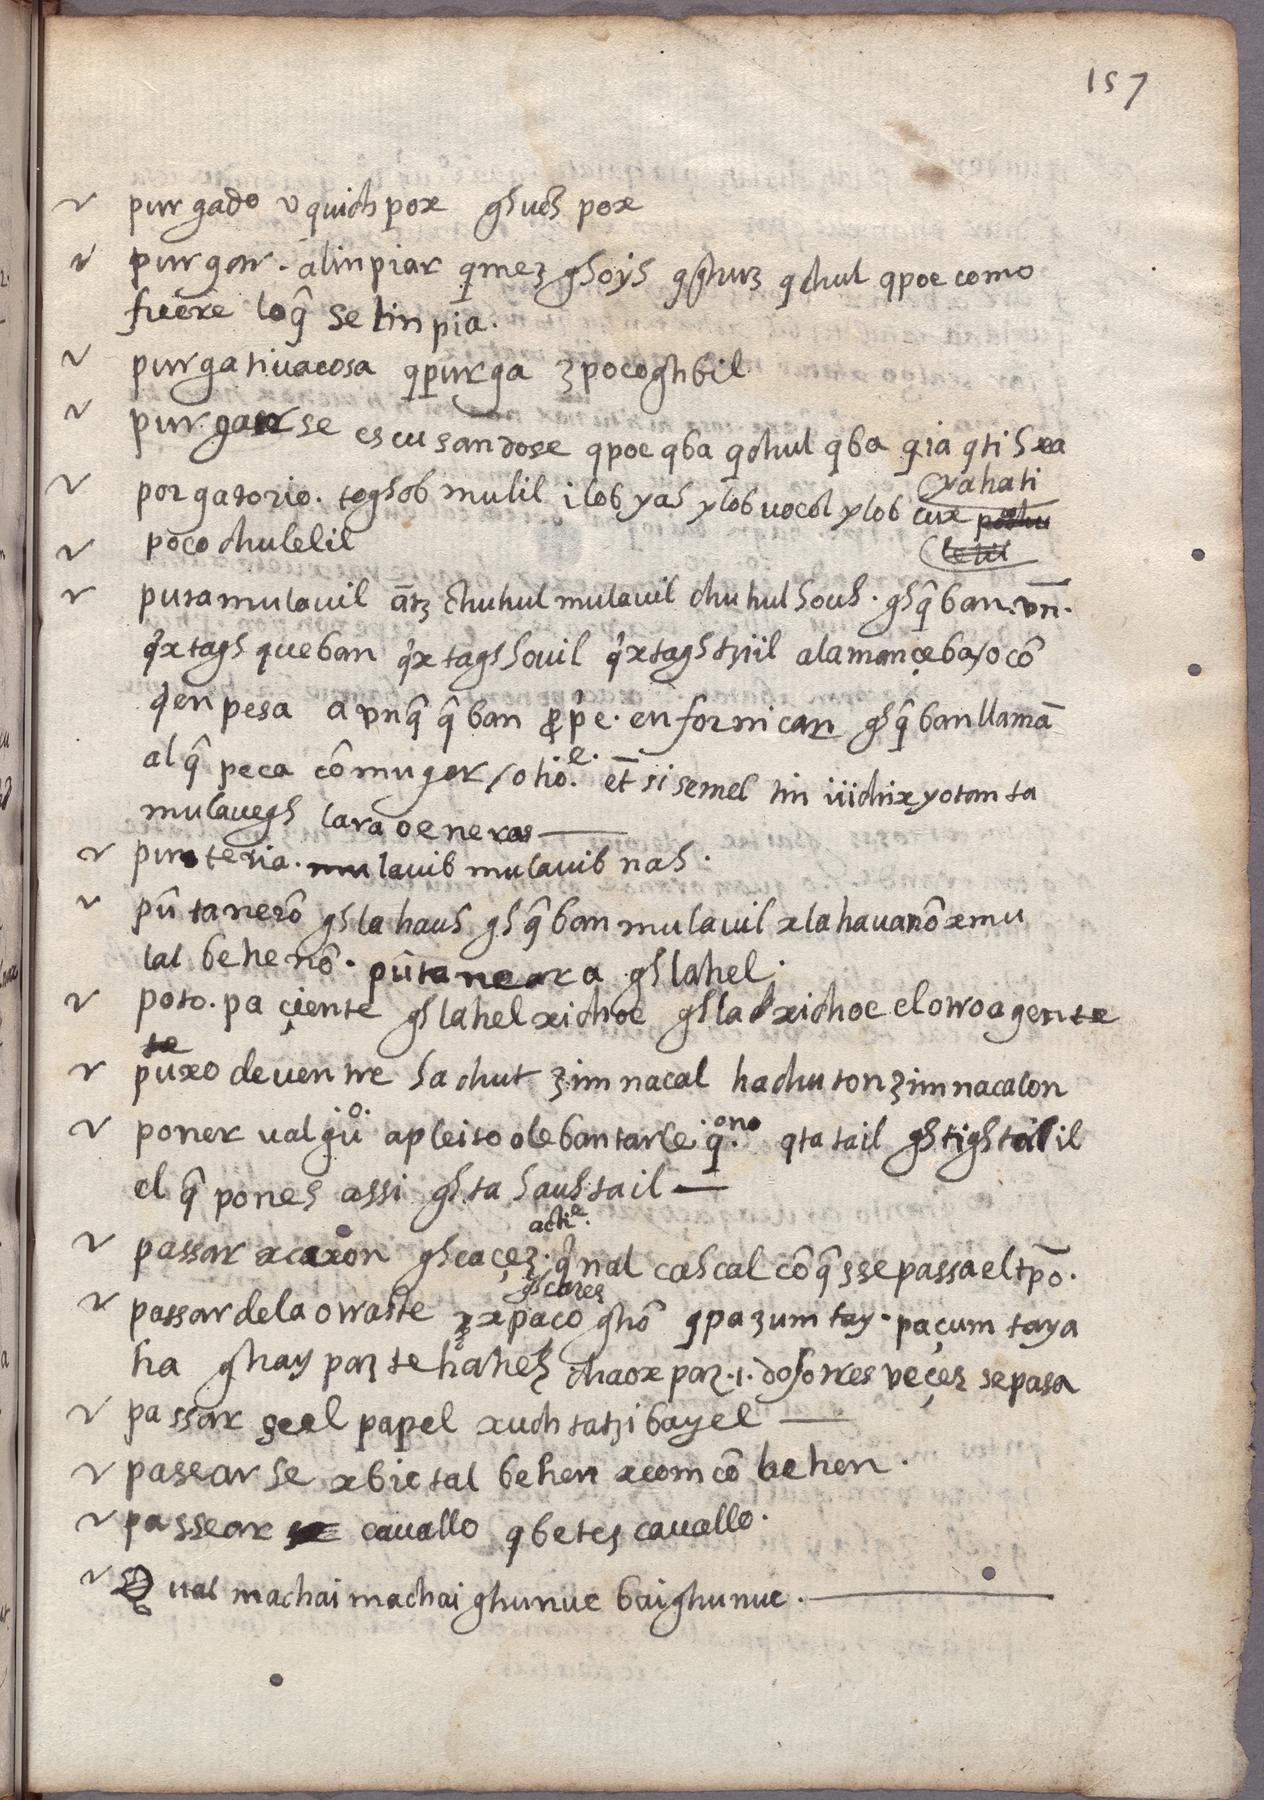 157
purgado v quich pox ghuch pox
purgar. alinpiar qmez ghoyh qghurz qchul qpoe como
fuere loq̃ se linpia.
purgativa cosa q purga zpocoghbil
purgarse escusandose qpoe qba qchul qba qia qtih xa
porgatorio. toghob mulil ilob yah ylob vocol ylob
yahati
poco chulelil
puta mulavil ãtz chuhul mulavil chuhul hovh. gh q̃ ban. vn.
q̃x tagh que ban q̃x tagh hovil q̃x tagh tziil alamançeba/o cõ
qen pesa a vn q̃ q̃ ban prop̃e. en fornicar gh q̃ ban llamã
al q̃ peca cõ muger/o hõe. et si semel tin viichix yotanta
mulavegh lara o eneras
puteria. mulavib mulavib nah.
putanero gh lahavh gh q̃ ban mulavil xlahavanõ xmu
lal behenõ. putanera ghlahel.
poto. paçiente gh lahel xichoc gh la xichoc el otro agente
puxo de vientre hachut zimnacal hachuton zimnacalon
poner val guo apleito o lebantarle q.ono qtatail gh tigh tail il
el q̃ pones assi gh ta havh tail
passar acaxon gh caçez. actie. q̃nal cahcal cõ q̃ sse passa el tpõ.
ghcarez
passar de la otra pte xpaco ghõ qpazumtay. paçumtaya
ha ghay paz te hahez chaox paz .i. dos o tres veçes se pasa
passarse el papel xuch tatzibayel
pasearse xbictal behen xcomcõ behen.
passear cavallo qbetes cavallo.
Qual machai machai ghunuc bai ghunuc.